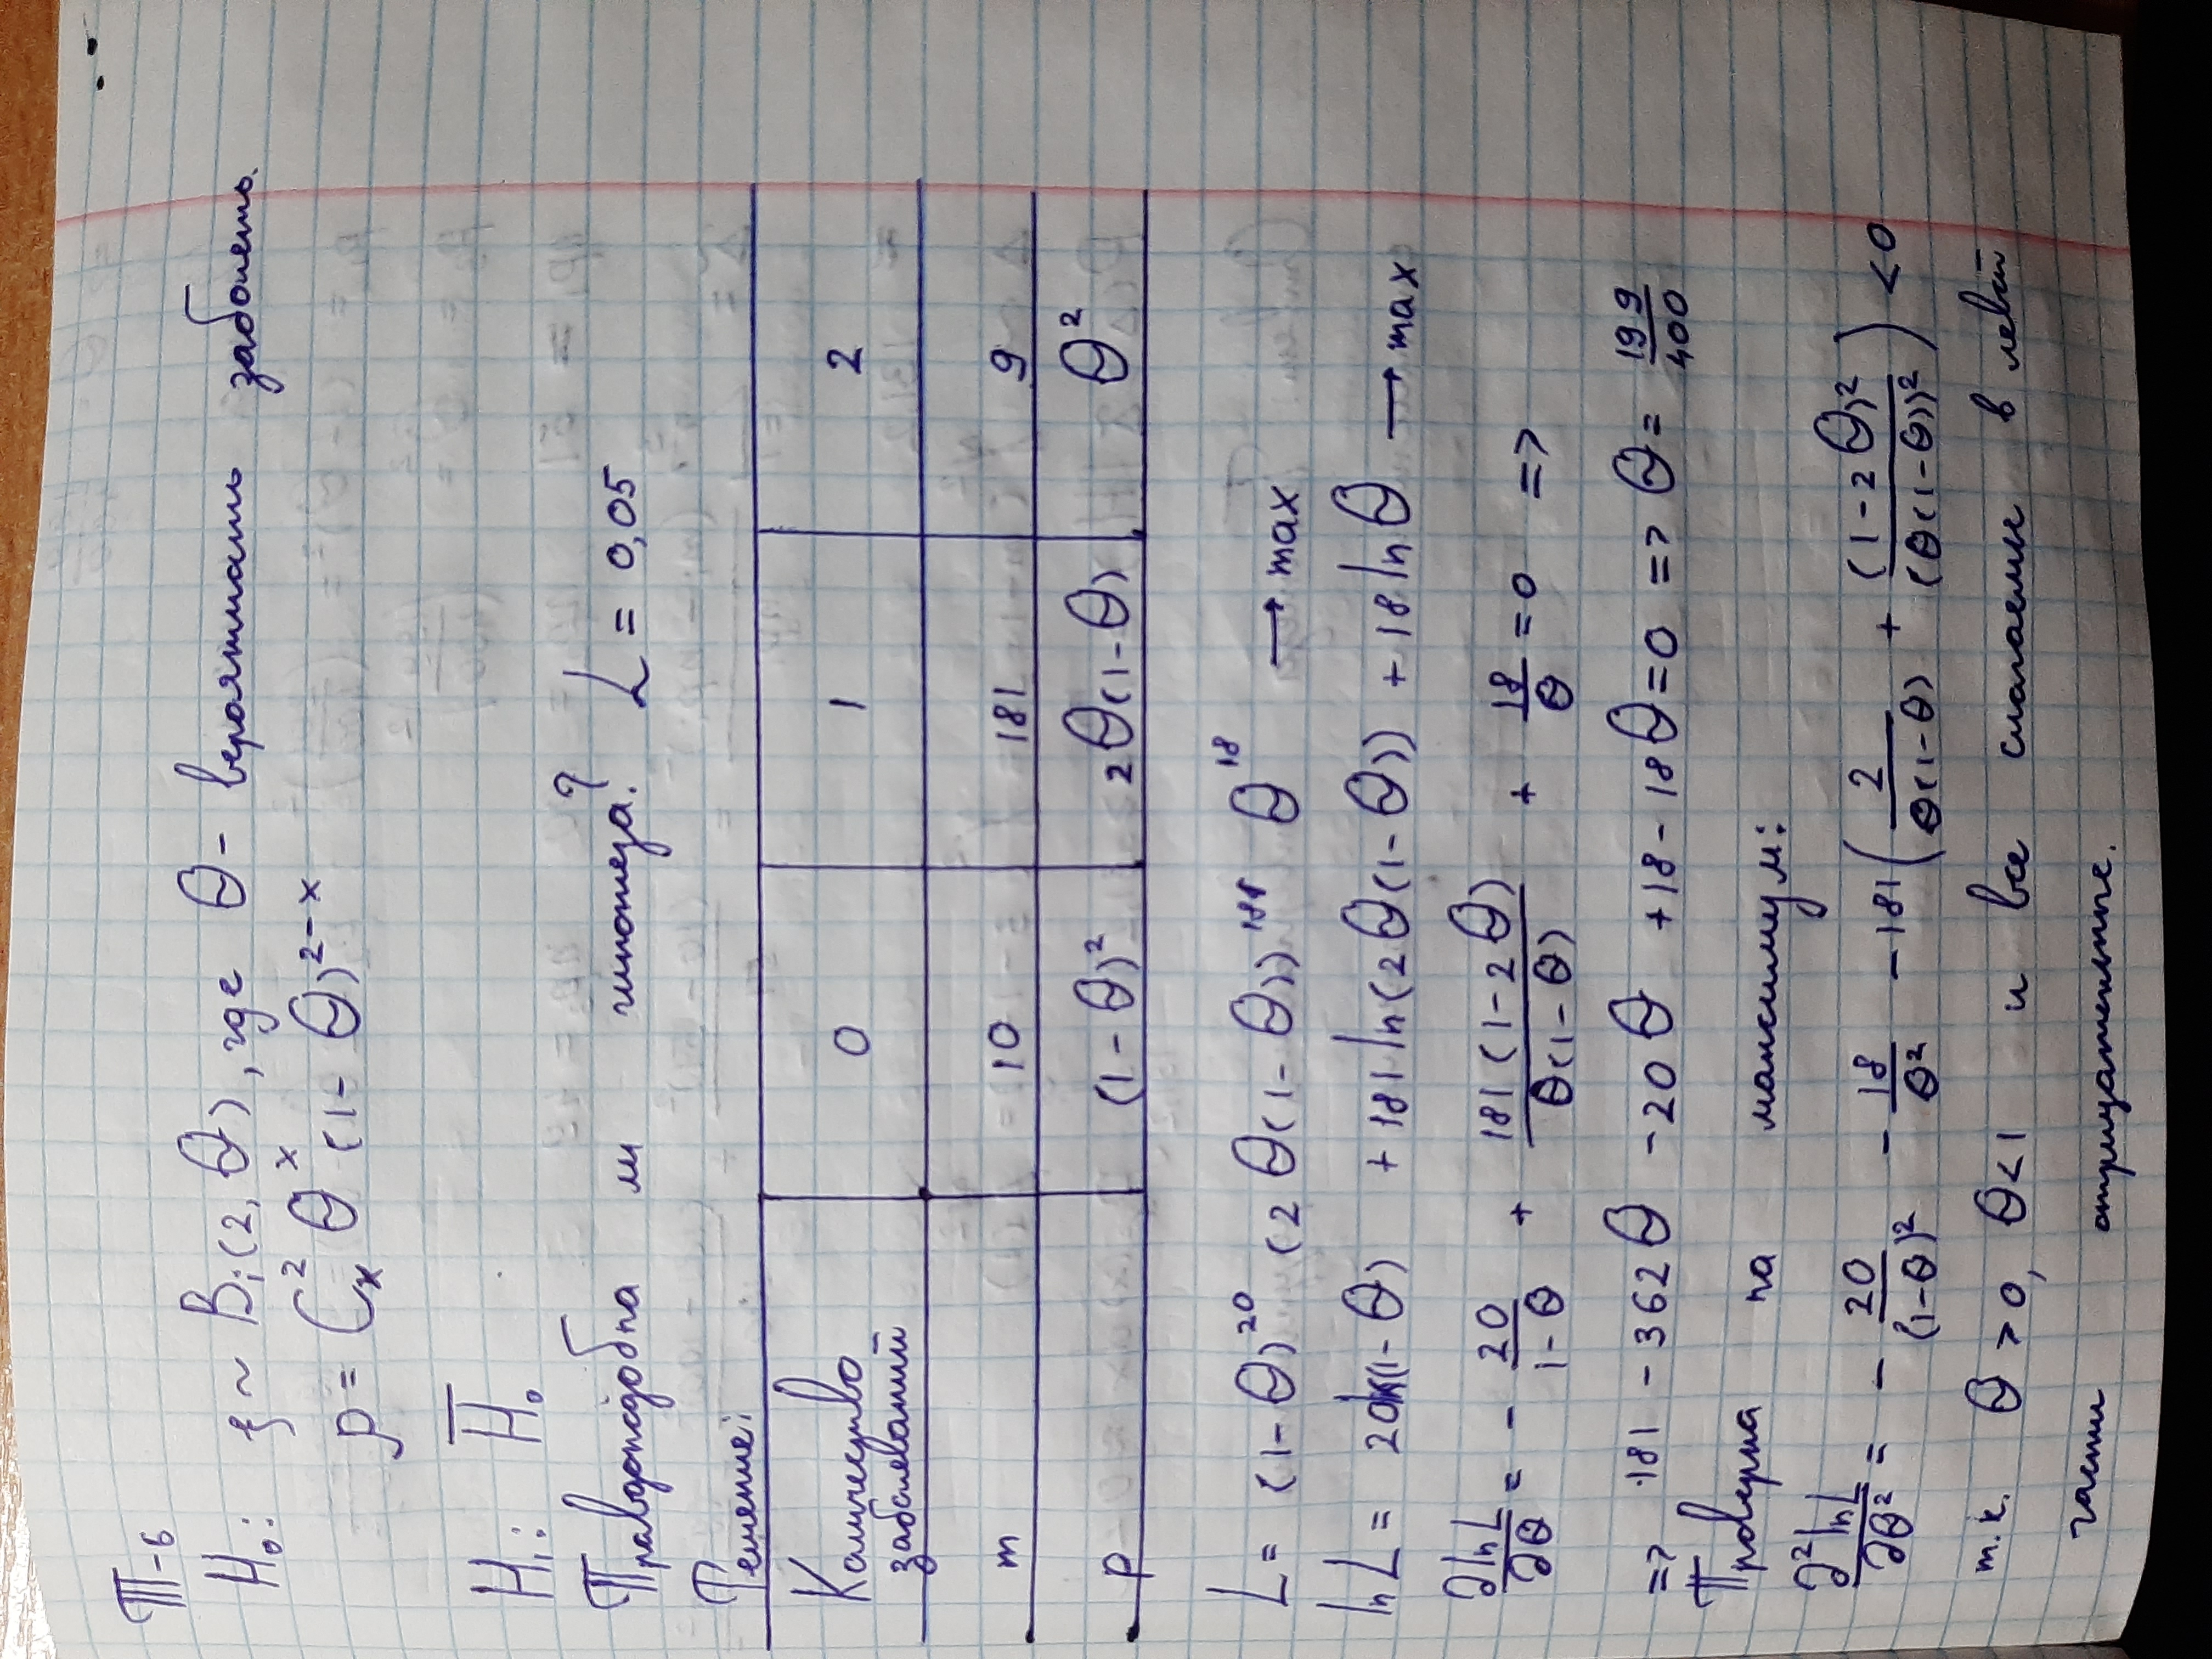 Т-6
H₀: ξ ~ Bi(2, Θ), где Θ - вероятность заболеть.
p = C²ₓ Θˣ (1 - Θ)²⁻ˣ
H₁: H̅₀
Правдоподобна ли гипотеза? L = 0,05
Решение:
Количество заболеваний 0 1 2
m 10 181 9
p (1 - Θ)² 2Θ(1-Θ) Θ²
L = (1-Θ)²⁰ (2Θ(1-Θ))¹⁸¹ Θ¹⁸ → max
ln L = 20ln(1-Θ) + 181 ln(2Θ(1-Θ)) + 18 ln Θ → max
∂lnL/∂Θ = - 20/(1-Θ) + 181(1-2Θ)/(Θ(1-Θ)) + 18/Θ = 0 =>
=> 181 - 362Θ - 20Θ + 18 - 18Θ = 0 => Θ = 199/400
Проверка на максимум:
∂²lnL/∂Θ² = - 20/(1-Θ)² - 18/Θ² - 181(2/(Θ(1-Θ)) + (1-2Θ)²/(Θ(1-Θ))²) < 0
т.к. Θ > 0, Θ < 1 и все слагаемые в левой
части отрицательные.